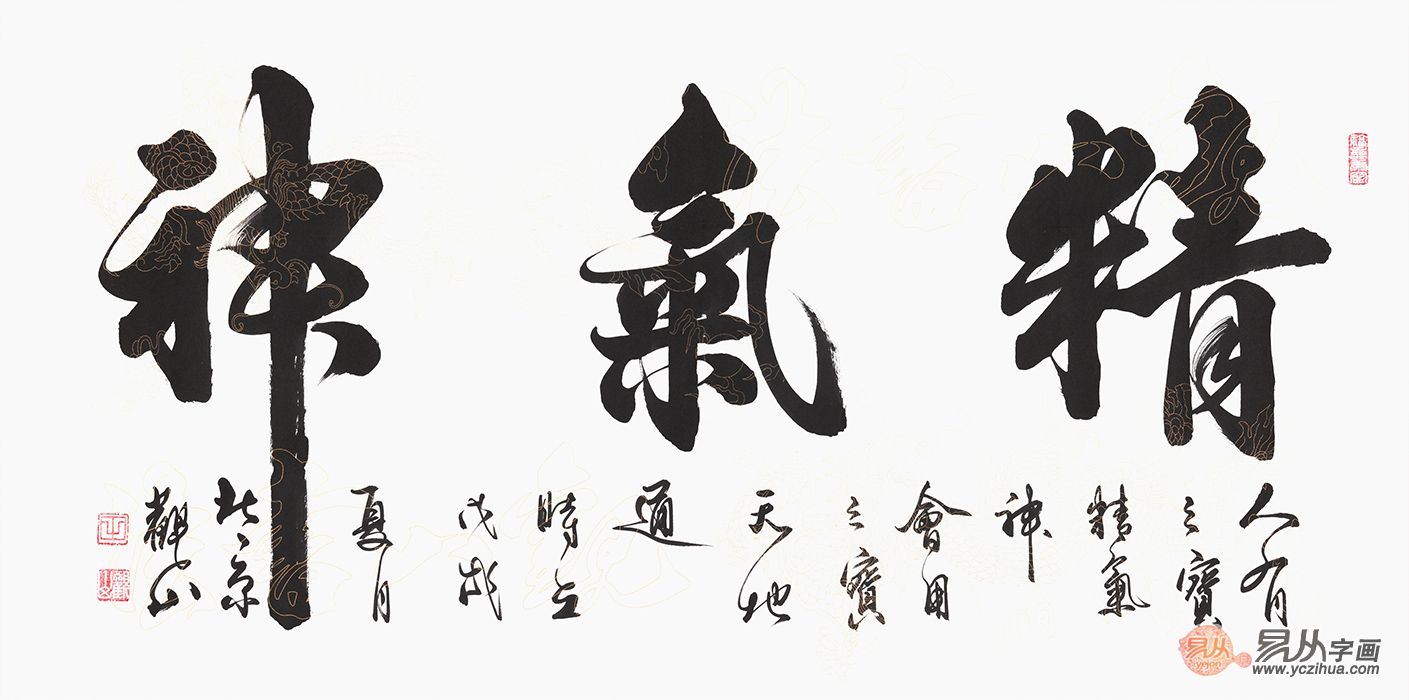 精氣神
人有
三寶
精氣
神
會用
三寶
天地
通
時在
戊戌
夏月
北京
觀山
易从
yejon
易从字画
www.yczihua.com